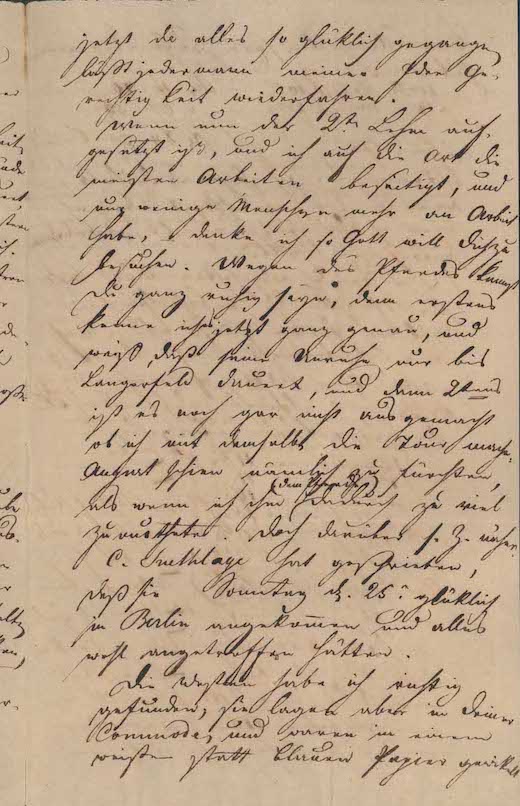 jetzt da alles so glüklich gegangen
läßt jedermann meiner Idee Ge-
rechtigkeit wiederfahren.
Wenn nun der 2te Lehm auf-
gesetzt ist, und ich auf die Art die
meisten Arbeiten beseitigt, und
nur wenige Menschen mehr an Arbeit
habe, denke ich so Gott will Dich zu
besuchen. Wegen des Pferdes kannst
Du ganz ruhig seyn, denn erstens
kenne ich es jetzt ganz genau, und
weiß, daß seine Unruhe nur bis
Langerfeld dauert, und dann 2tens
ist es noch gar nicht ausgemacht
ob ich mit demselben die Tour mache.
August schien nämlich zu fürchten,
als wenn ich ihm (dem Pferde) dadurch zu viel
zumuthete. Doch darüber s. Z. näher.
C. Snethlage hat geschrieben,
daß sie Sonntag d. 25t glüklich
in Berlin angekommen und alles
wohl angetroffen hätten.
Die Westen habe ich richtig
gefunden; sie lagen aber in Deiner
Commode, und waren in einem
weißen statt blauen Papier gewikelt